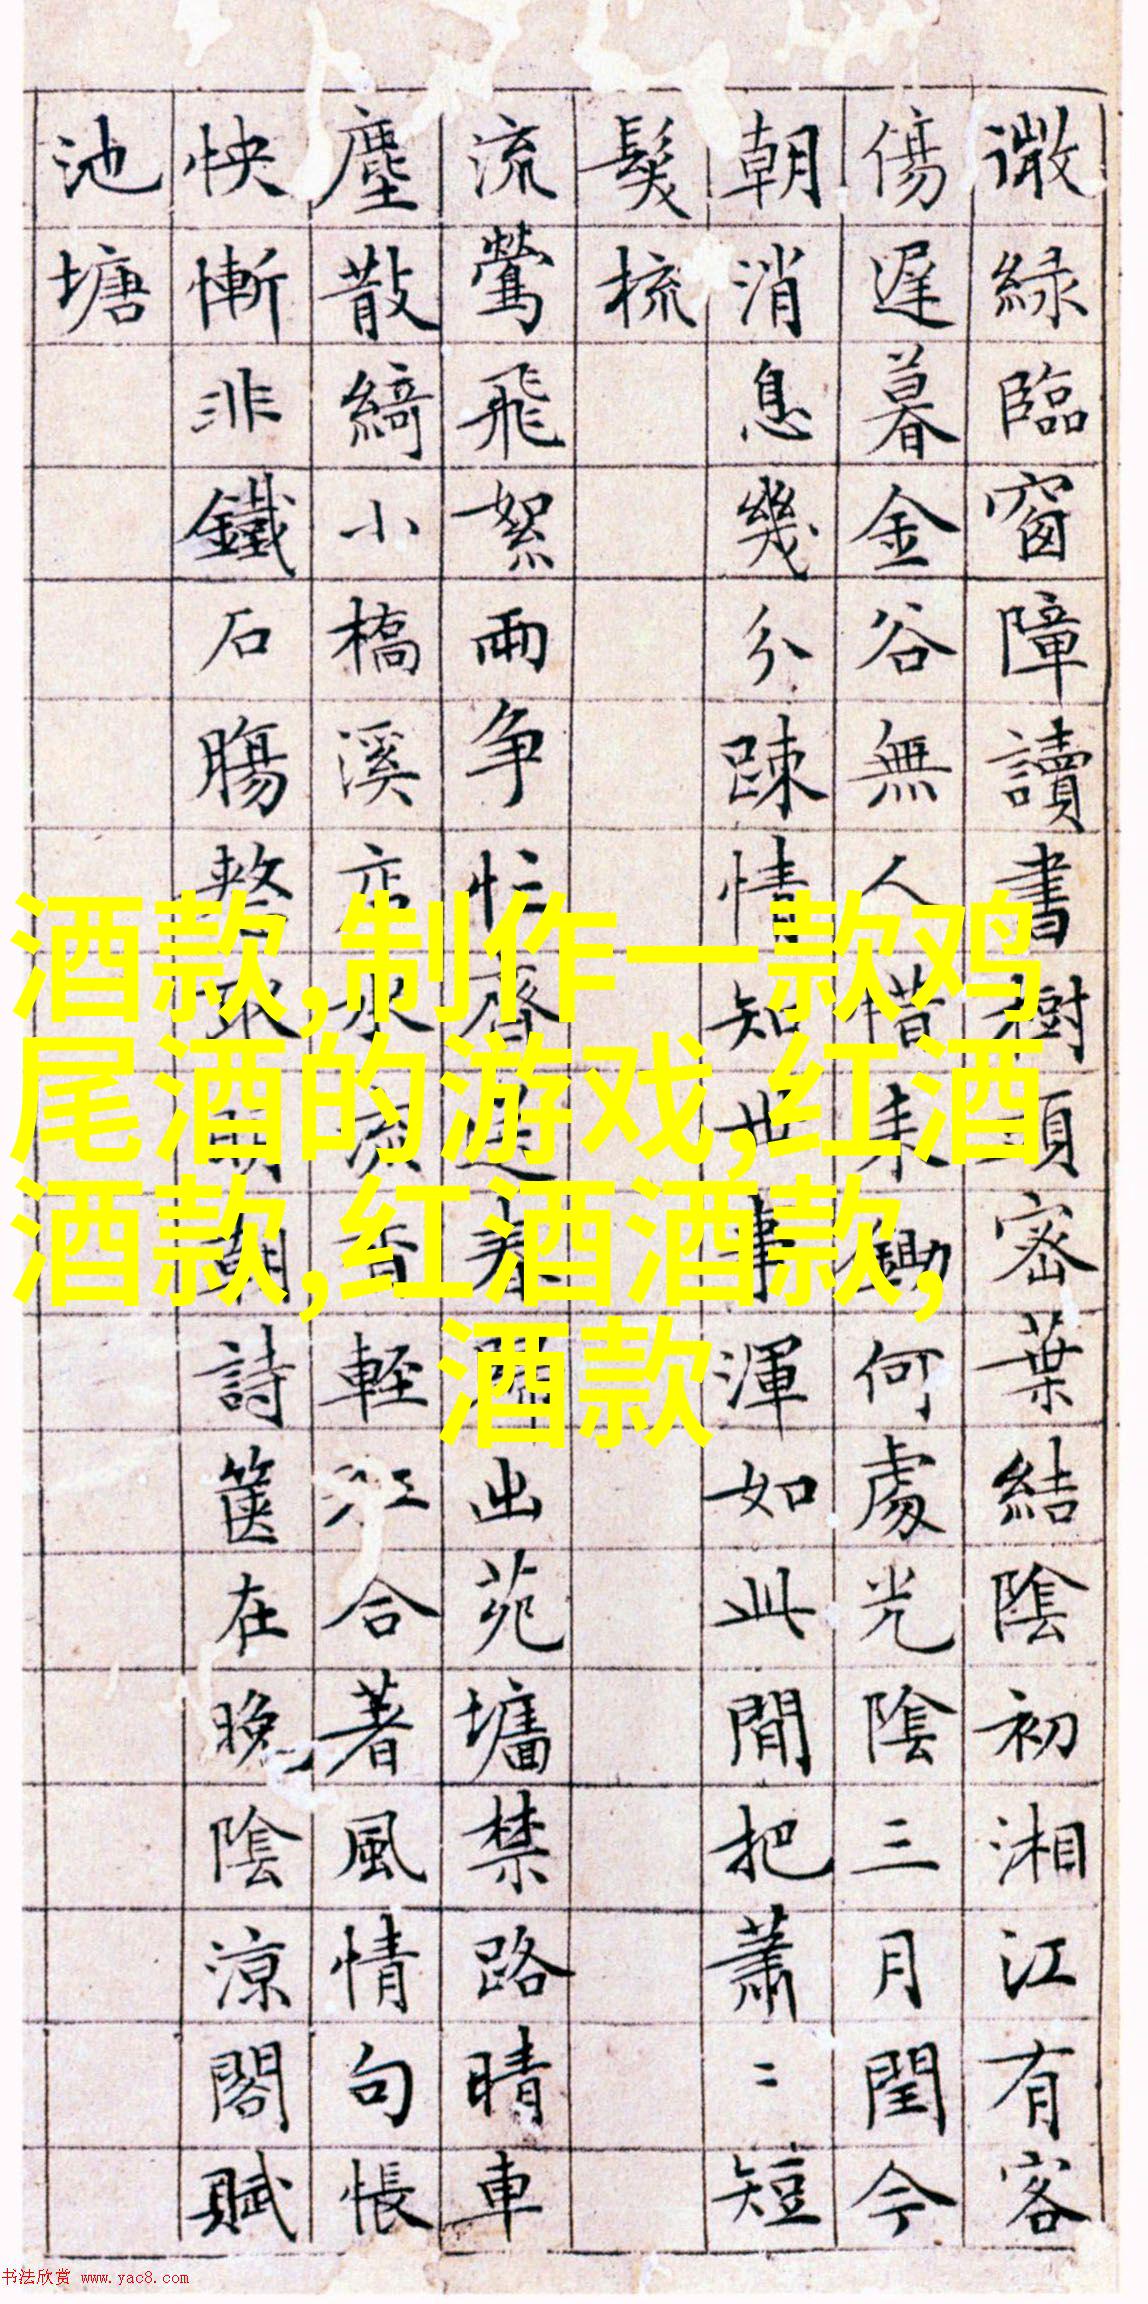 微綠臨窗障讀書樹頭密葉結陰初湘江有客
傷遲暮金谷無人惜耒鋤何處光陰三月閏今
朝消息幾分踈情知世事渾如此間把蕭〻短
鬓梳
流鶯飛絮兩爭忙齊送春歸出苑墻禁路晴車
塵散綺小橋溪店水流香輕江合著風情句悵
怏慚非鐵石腸整取明朝詩篋在晚陰涼閣賦
池塘
酒款,制作一款鸡
尾酒的游戏,红酒
酒款,红酒酒款,
酒款
书法欣赏 www.yac8.com